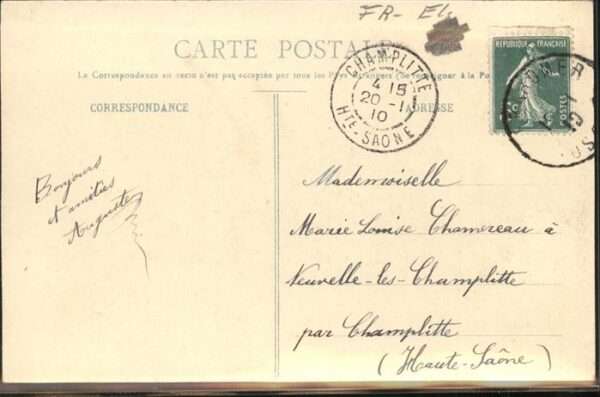 FR-
CARTE POSTALE
La Correspondance au recto n'est pas acceptée par tous les Pays étrangers (Se renseigner à la Po
CORRESPONDANCE
ADRESSE
CHAMPLITTE
4 15
20 -1
10
HTE-SAONE
REPUBLIQUE FRANÇAISE
POSTES
Bonjours
et amitiés
Auguste
Mademoiselle
Marie Louise Chamereau à
Neuvelle-les-Champlitte
par Champlitte
(Haute-Saône)